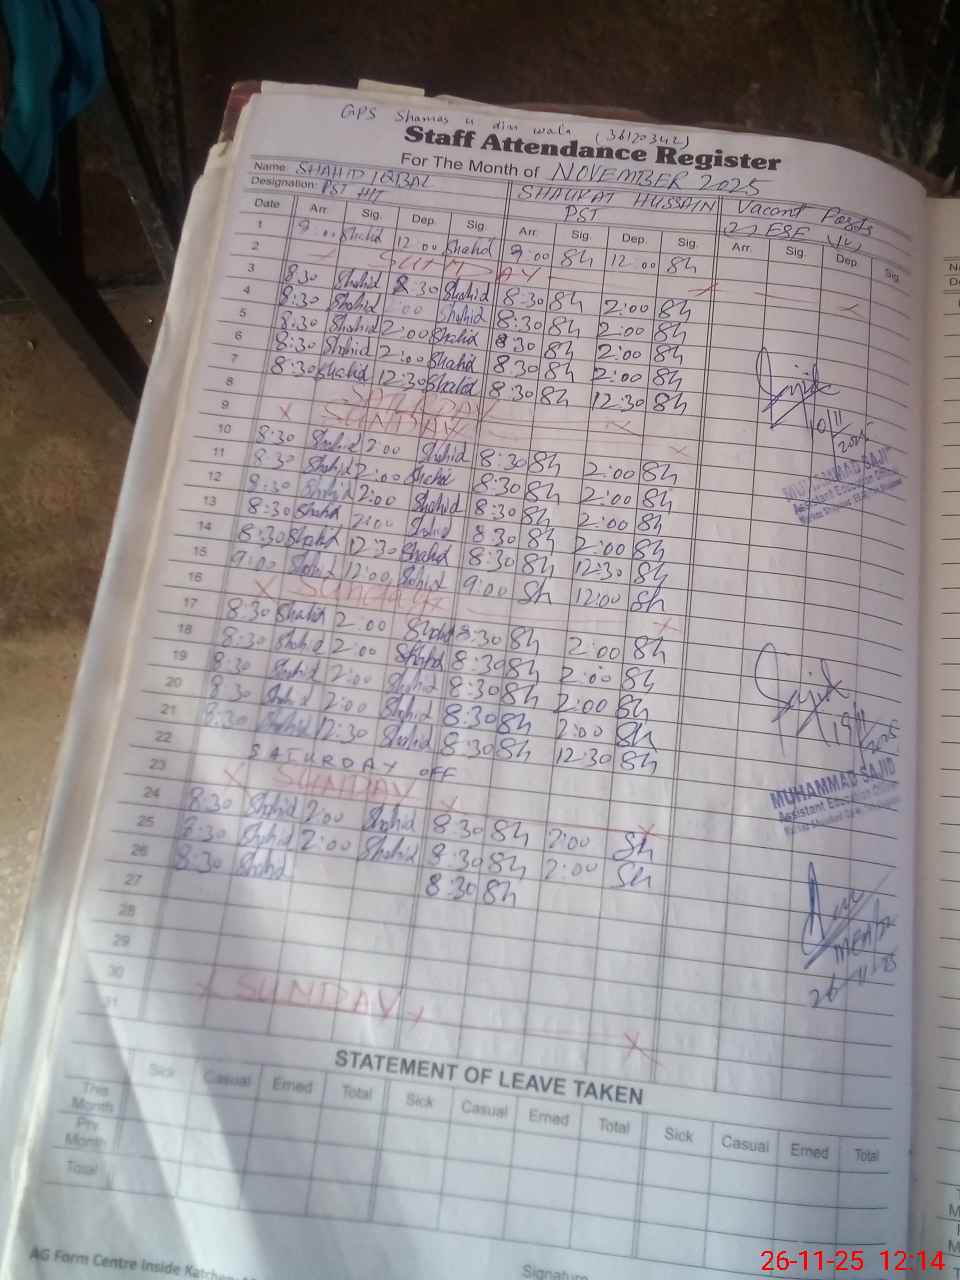 GPS Shamas u din wala (36120342)
Staff Attendance Register
For The Month of NOVEMBER 2025
Name: SHAHID IQBAL SHAUKAT HUSSAIN Vacant Posts
Designation: PST HT PST (2) ESE
Date Arr. Sig. Dep. Sig. Arr. Sig. Dep. Sig. Arr. Sig. Dep. Sig.
1 9:00 Shahid 12:00 Shahid 9:00 Sh 12:00 Sh
2 SUNDAY
3 8:30 Shahid 2:30 Shahid 8:30 Sh 2:00 Sh
4 8:30 Shahid :00 Shahid 8:30 Sh 2:00 Sh
5 8:30 Shahid 2:00 Shahid 8:30 Sh 2:00 Sh
6 8:30 Shahid 2:00 Shahid 8:30 Sh 2:00 Sh
7 8:30 Shahid 12:30 Shahid 8:30 Sh 12:30 Sh
8 SATURDAY
9 X SUNDAY X
10 8:30 Shahid 2:00 Shahid 8:30 Sh 2:00 Sh
11 8:30 Shahid 2:00 Shahid 8:30 Sh 2:00 Sh
12 8:30 Shahid 2:00 Shahid 8:30 Sh 2:00 Sh
13 8:30 Shahid 2:00 Shahid 8:30 Sh 2:00 Sh
14 8:30 Shahid 12:30 Shahid 8:30 Sh 12:30 Sh
15 9:00 Shahid 12:00 Shahid 9:00 Sh 12:00 Sh
16 X Sunday X X
17 8:30 Shahid 2:00 Shahid 8:30 Sh 2:00 Sh
18 8:30 Shahid 2:00 Shahid 8:30 Sh 2:00 Sh
19 8:30 Shahid 2:00 Shahid 8:30 Sh 2:00 Sh
20 8:30 Shahid 2:00 Shahid 8:30 Sh 2:00 Sh
21 8:30 Shahid 12:30 Shahid 8:30 Sh 12:30 Sh
22 SATURDAY OFF
23 X SUNDAY X X
24 8:30 Shahid 2:00 Shahid 8:30 Sh 2:00 Sh
25 8:30 Shahid 2:00 Shahid 8:30 Sh 2:00 Sh
26 8:30 Shahid 8:30 Sh
27
28
29
30 X SUNDAY X X
31
10/11/2025
MUHAMMAD SAJID
Assistant Education Officer
19/11/2025
MUHAMMAD SAJID
Assistant Education Officer
26-11-25
STATEMENT OF LEAVE TAKEN
Sick Casual Erned Total Sick Casual Erned Total Sick Casual Erned Total
This Month
Prv. Month
Total
AG Form Centre Inside
Signature
26-11-25 12:14